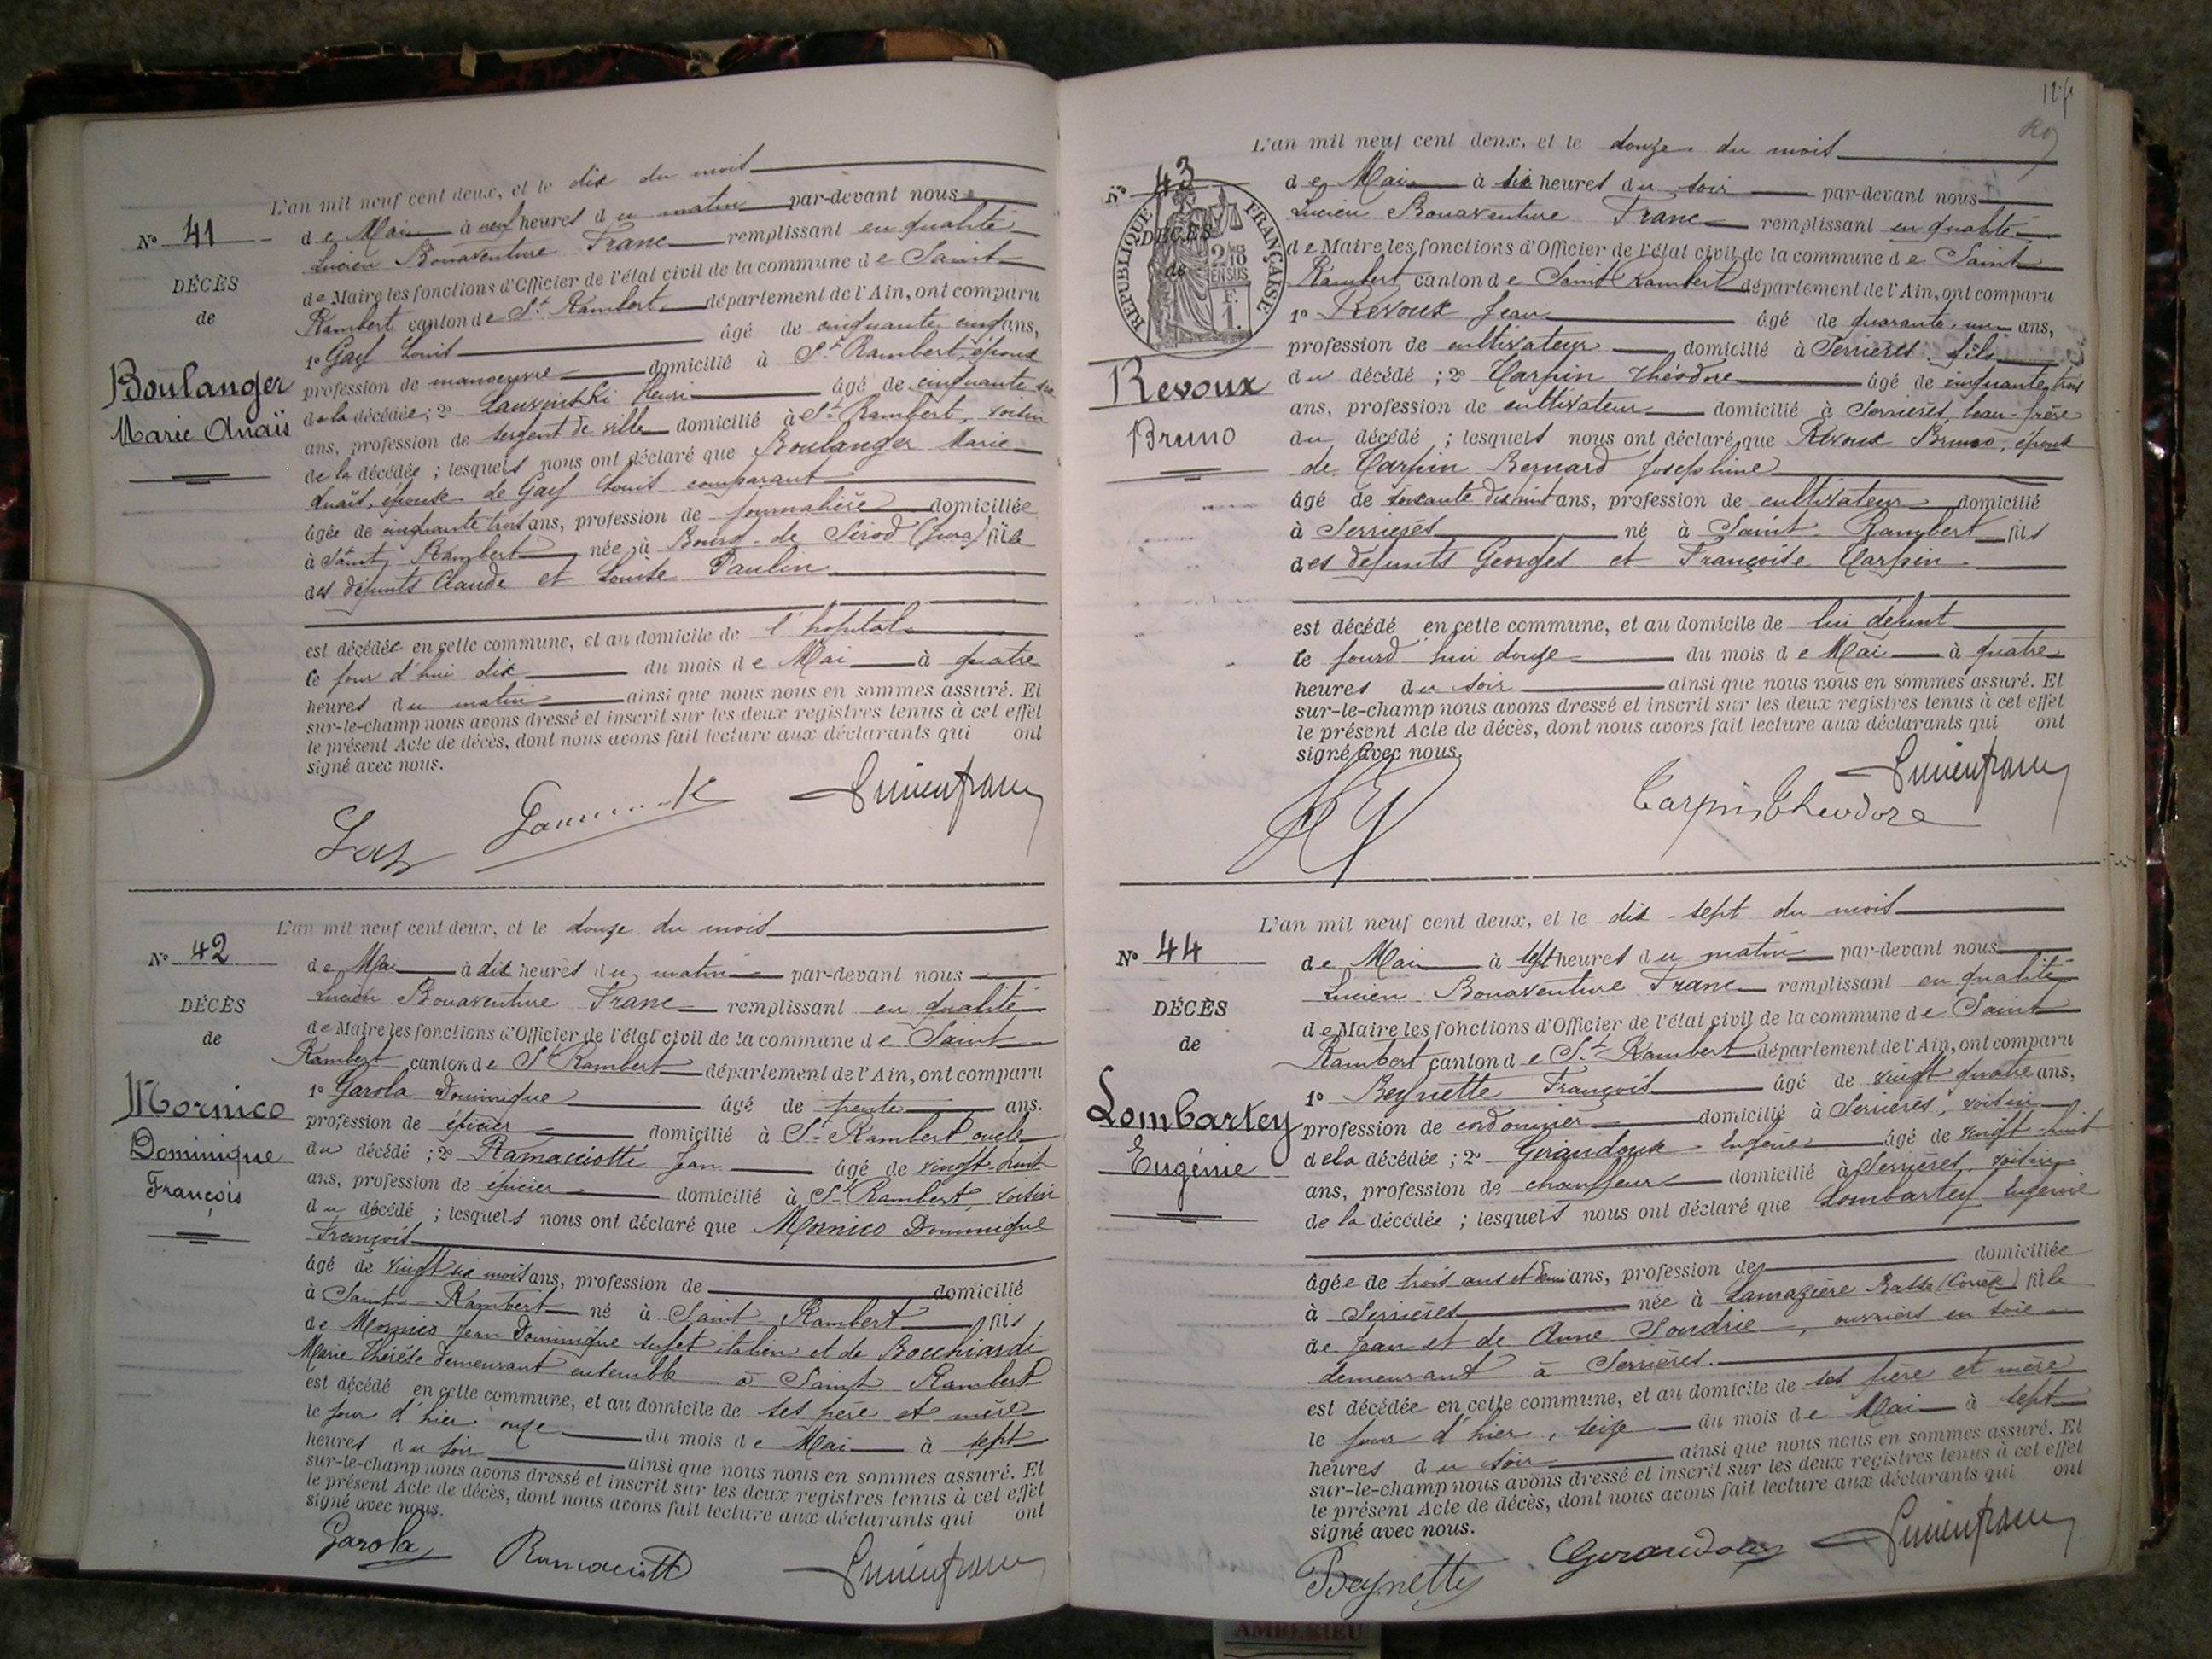 L'an mil neuf cent deux, et le dix du mois
de Mai à neuf heures du matin par-devant nous
Lucien Bonaventure Franc remplissant en qualité
de Maire les fonctions d'Officier de l'état civil de la commune de Saint
Rambert canton de St Rambert département de l'Ain, ont comparu
1º Gay Louis âgé de cinquante cinq ans,
profession de manoeuvre domicilié à St Rambert, époux
de la décédée; 2º Henri âgé de cinquante six
ans, profession de sergent de ville domicilié à St Rambert, voisin
de la décédée; lesquels nous ont déclaré que Boulanger Marie
Anaïs, épouse de Gay Louis comparant
âgée de cinquante trois ans, profession de journalière domiciliée
à Saint Rambert née à Bourg-de-Sirod (Jura) fille
des défunts Claude et Louise Paulin
est décédée en cette commune, et au domicile de l'hopital
le jour d'hui dix du mois de Mai à quatre
heures du matin ainsi que nous nous en sommes assuré. Et
sur-le-champ nous avons dressé et inscrit sur les deux registres tenus à cet effet
le présent Acte de décès, dont nous avons fait lecture aux déclarants qui ont
signé avec nous.
Nº 41
DÉCÈS
de
Boulanger
Marie Anaïs
Gay Lucien Franc
L'an mil neuf cent deux, et le douze du mois
de Mai à dix heures du matin par-devant nous
Lucien Bonaventure Franc remplissant en qualité
de Maire les fonctions d'Officier de l'état civil de la commune de Saint
Rambert canton de St Rambert département de l'Ain, ont comparu
1º Garola Dominique âgé de trente ans.
profession de épicier domicilié à St Rambert oncle
du décédé; 2º Ramaciotti Jean âgé de vingt-huit
ans, profession de épicier domicilié à St Rambert, voisin
du décédé; lesquels nous ont déclaré que Mornico Dominique
François
âgé de vingt six mois ans, profession de domicilié
à Saint-Rambert né à Saint-Rambert fils
de Mornico Jean Dominique sujet italien et de Bocchiardi
Marie Thérèse demeurant ensemble à Saint Rambert
est décédé en cette commune, et au domicile de ses père et mère
le jour d'hier onze du mois de Mai à sept
heures du soir ainsi que nous nous en sommes assuré. Et
sur-le-champ nous avons dressé et inscrit sur les deux registres tenus à cet effet
le présent Acte de décès, dont nous avons fait lecture aux déclarants qui ont
signé avec nous.
Nº 42
DÉCÈS
de
Mornico
Dominique
François
Garola Ramaciotti Lucien Franc
L'an mil neuf cent deux, et le douze du mois
de Mai à six heures du soir par-devant nous
Lucien Bonaventure Franc remplissant en qualité
de Maire les fonctions d'Officier de l'état civil de la commune de Saint
Rambert canton de Saint Rambert département de l'Ain, ont comparu
1º Revoux Jean âgé de quarante-un ans,
profession de cultivateur domicilié à Serrières fils
du décédé; 2º Tarpin Théodore âgé de cinquante trois
ans, profession de cultivateur domicilié à Serrières, beau-frère
du décédé; lesquels nous ont déclaré que Revoux Bruno, époux
de Tarpin Bernard Joséphine
âgé de soixante dix huit ans, profession de cultivateur domicilié
à Serrières né à Saint-Rambert fils
des défunts Georges et Françoise Tarpin
est décédé en cette commune, et au domicile de lui défunt
le jourd'hui douze du mois de Mai à quatre
heures du soir ainsi que nous nous en sommes assuré. Et
sur-le-champ nous avons dressé et inscrit sur les deux registres tenus à cet effet
le présent Acte de décès, dont nous avons fait lecture aux déclarants qui ont
signé avec nous.
Nº 43
DÉCÈS
de
RÉPUBLIQUE FRANÇAISE
2/10
EN SUS
F.
1.
Revoux
Bruno
Tarpin Théodore Lucien Franc
L'an mil neuf cent deux, et le dix-sept du mois
de Mai à sept heures du matin par-devant nous
Lucien Bonaventure Franc remplissant en qualité
de Maire les fonctions d'Officier de l'état civil de la commune de Saint
Rambert canton de St Rambert département de l'Ain, ont comparu
1º Beynette François âgé de vingt quatre ans,
profession de cordonnier domicilié à Serrières, voisin
de la décédée; 2º Giraudoux Eugène âgé de vingt-huit
ans, profession de chauffeur domicilié à Serrières, voisin
de la décédée; lesquels nous ont déclaré que Lombartey Eugénie
âgée de trois ans et demi ans, profession de domiciliée
à Serrières née à Lamazière Basse (Corrèze) fille
de Jean et de Anne Soudrie, ouvriers en soie
demeurant à Serrières.
est décédée en cette commune, et au domicile de ses père et mère
le jour d'hier, seize du mois de Mai à sept
heures du soir ainsi que nous nous en sommes assuré. Et
sur-le-champ nous avons dressé et inscrit sur les deux registres tenus à cet effet
le présent Acte de décès, dont nous avons fait lecture aux déclarants qui ont
signé avec nous.
Nº 44
DÉCÈS
de
Lombartey
Eugénie
Beynette Giraudoux Lucien Franc
AMBERIEU